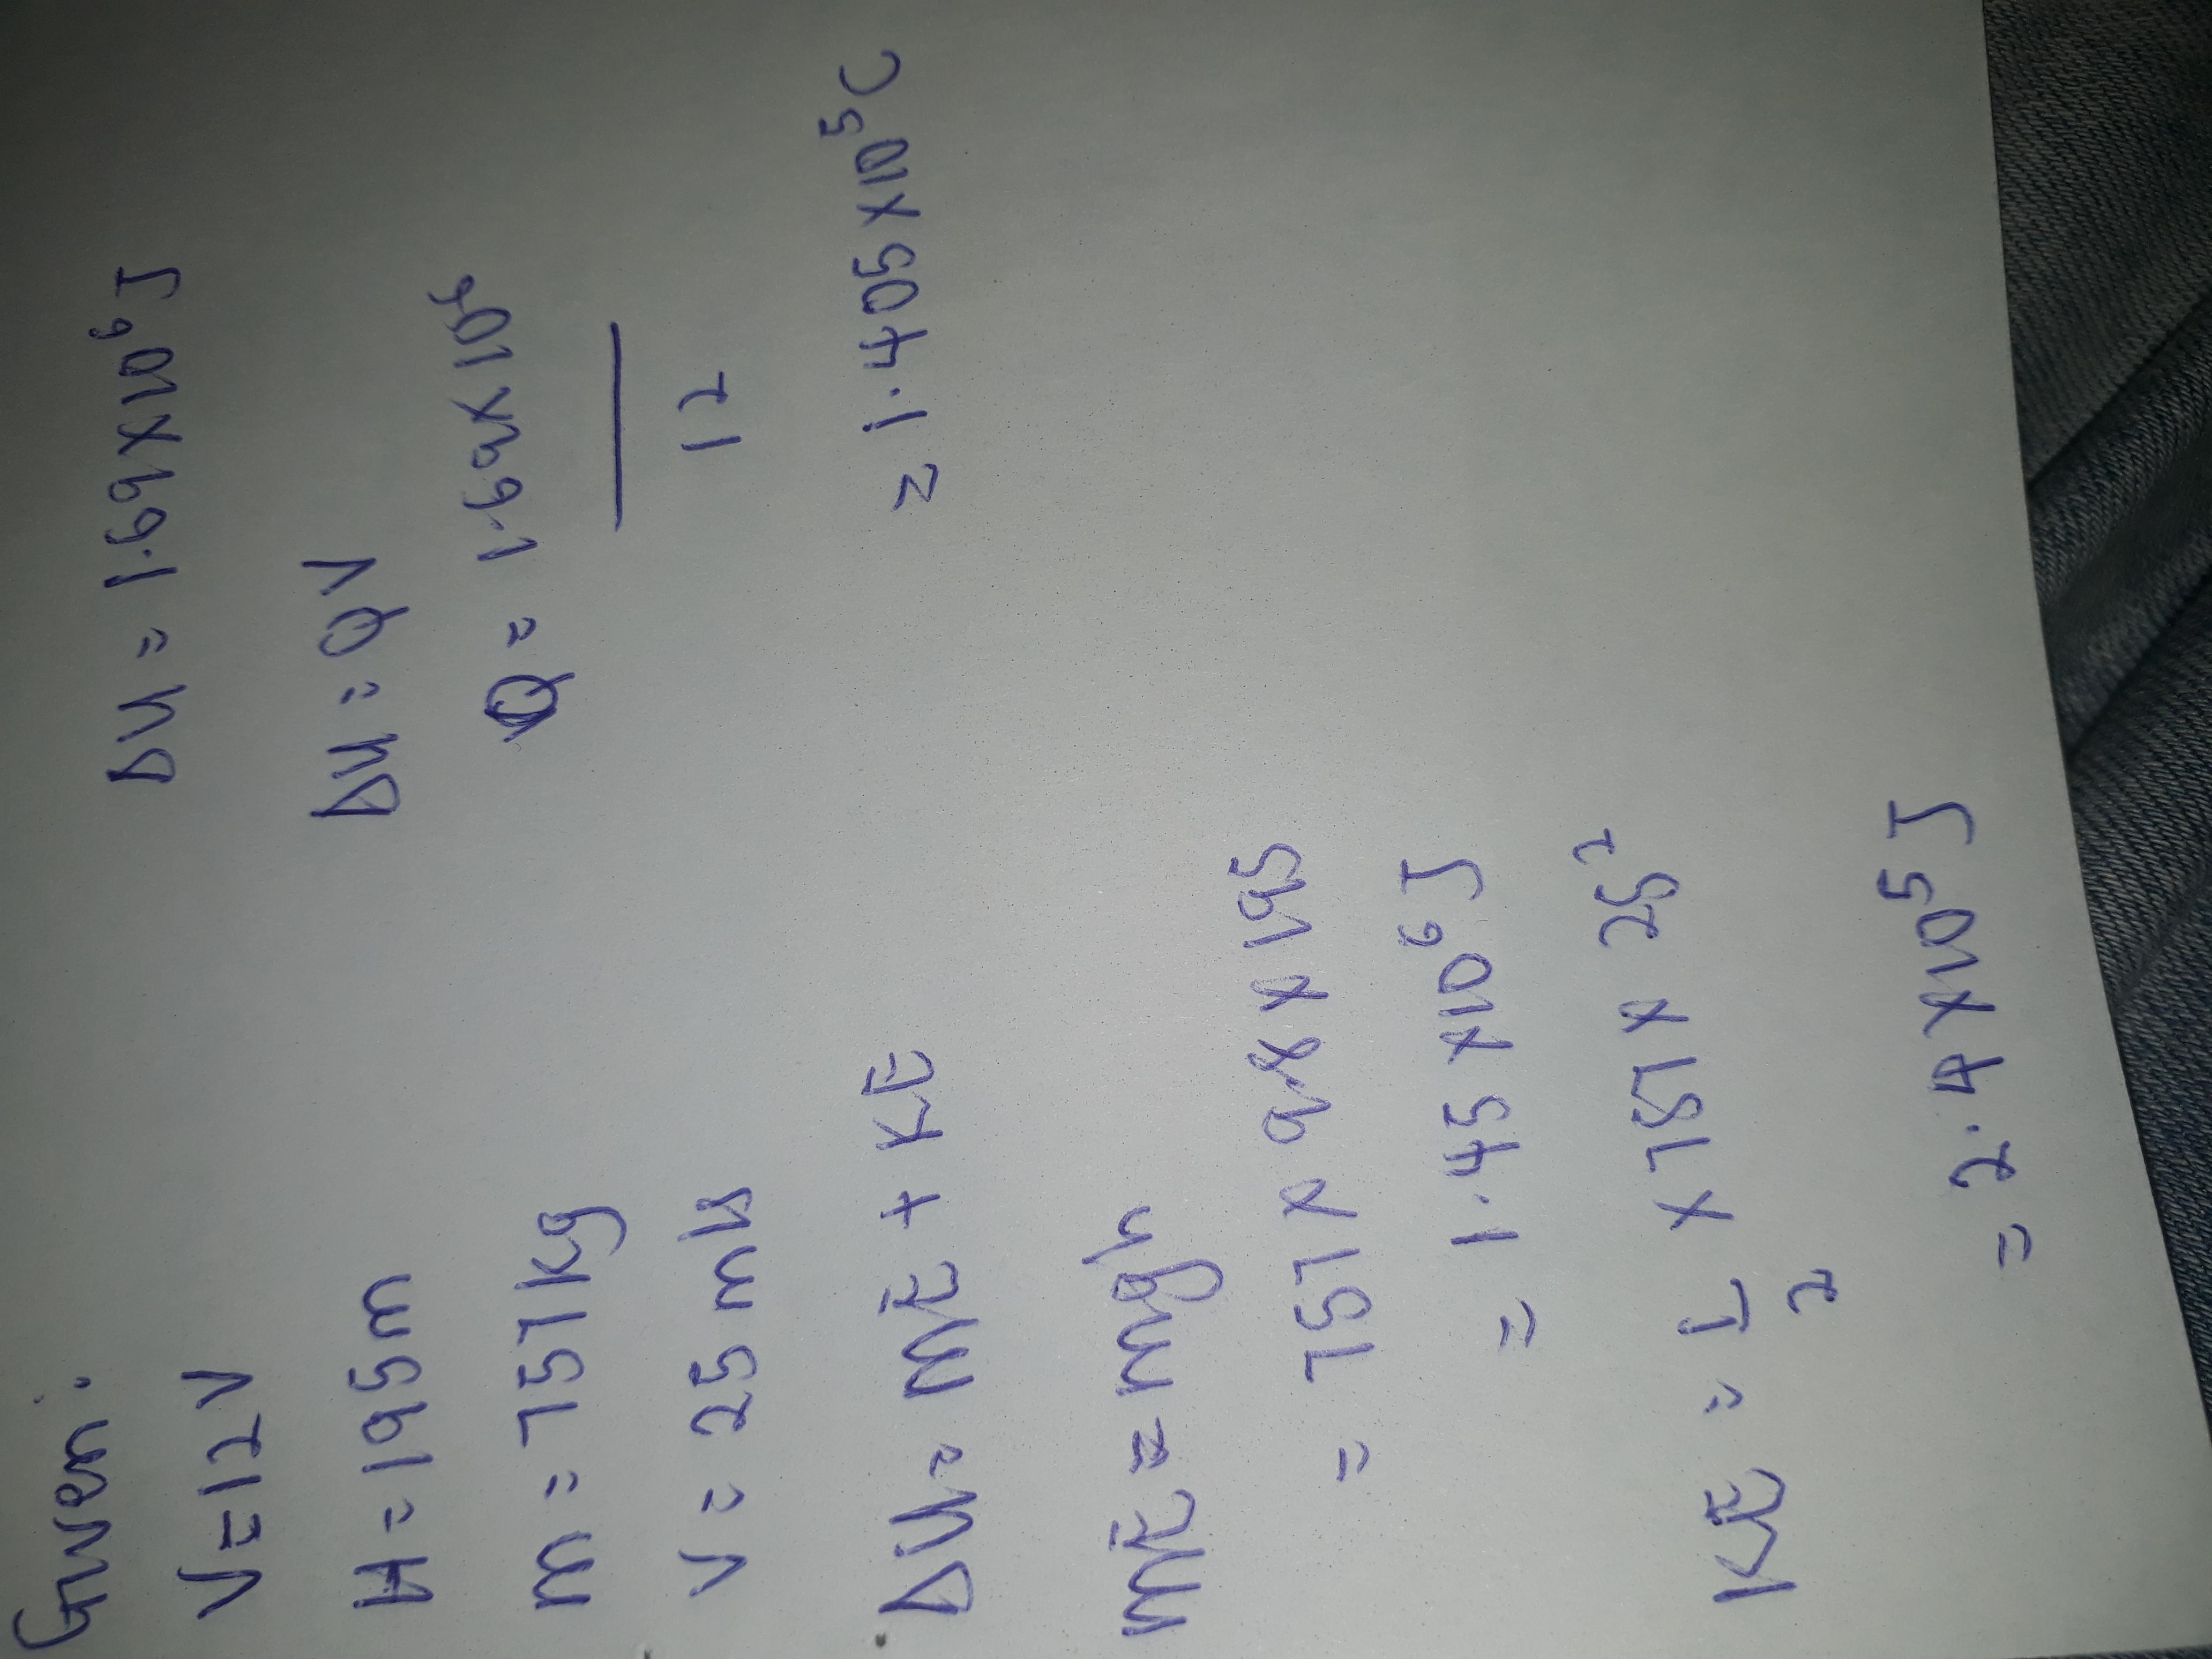 Given:
V = 12V
H = 195m
m = 757kg
V = 25 m/s
ΔU = ME + KE
ME = mgh
= 757 x 9.8 x 195
= 1.45 x10⁶J
KE = 1/2 x 757 x 25²
= 2.4 x10⁵J
ΔU = 1.69x10⁶J
ΔU = QV
Q = 1.69x10⁶
12
= 1.405 x10⁵C